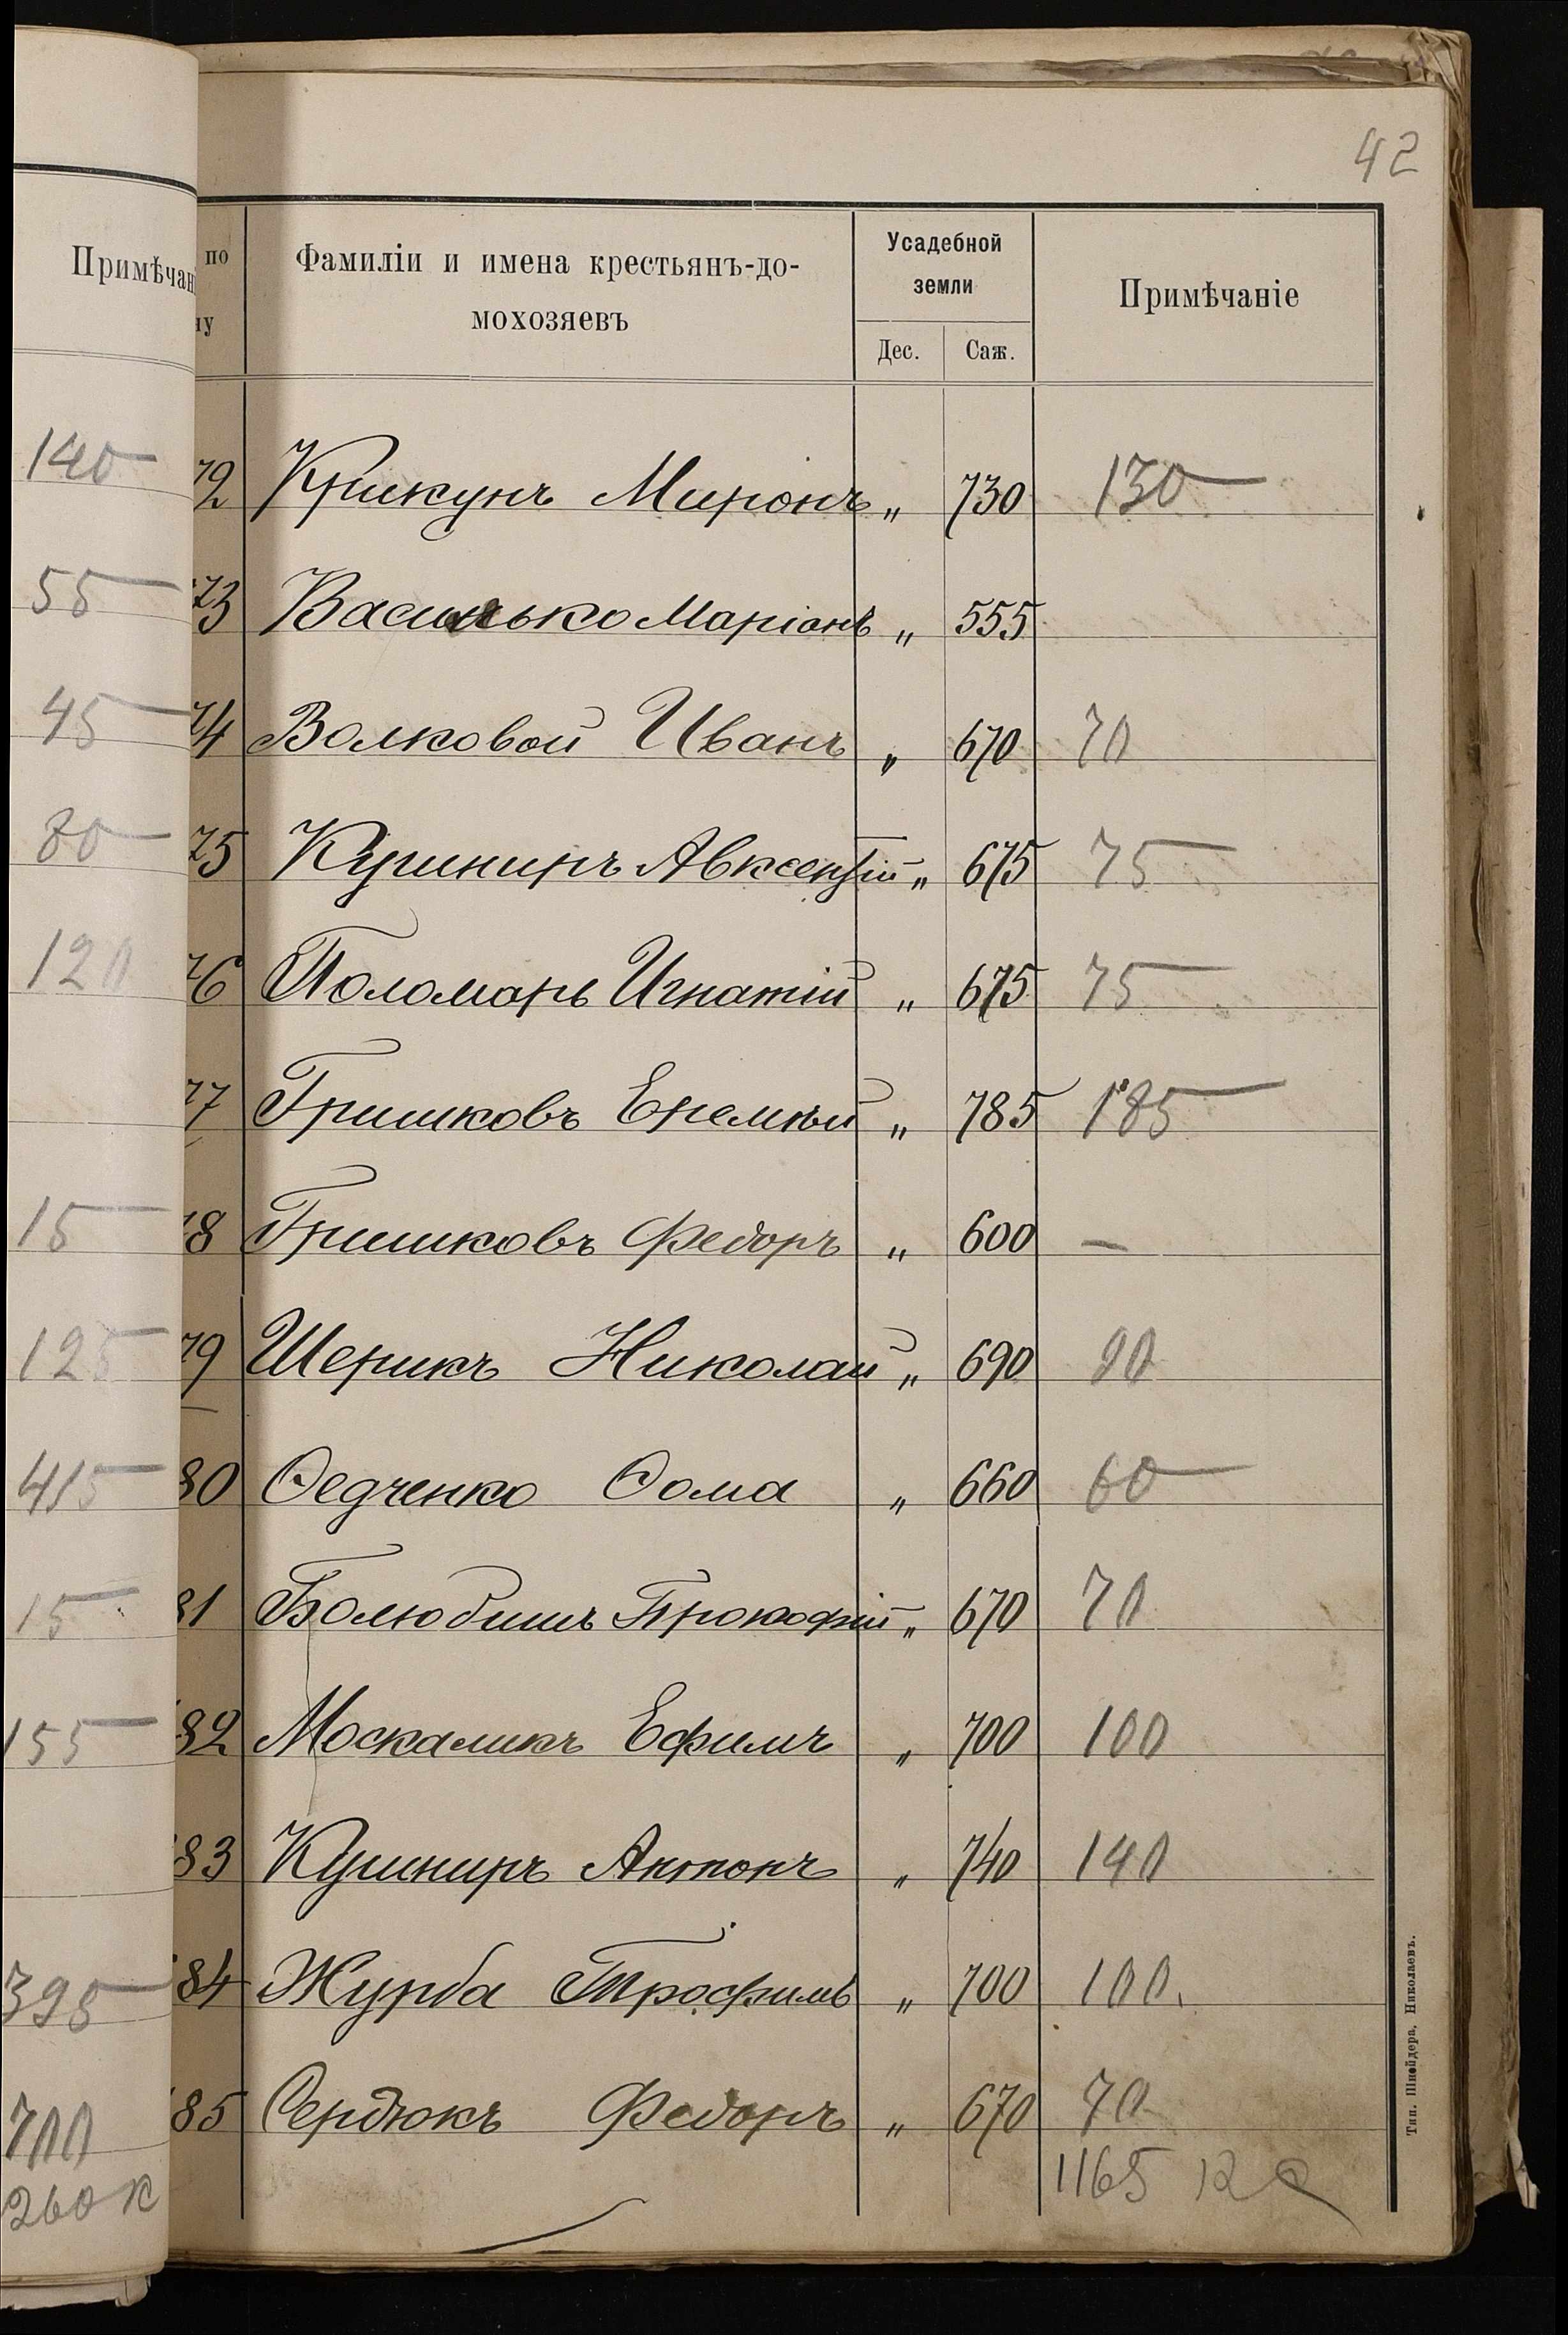 42
Примѣчан
по
ну
Фамиліи и имена крестьянъ-до-
мохозяевъ
Усадебной
земли
Дес. Саж.
Примѣчаніе
140
72 Крикунъ Миронъ „ 730 130
55
73 Василько Маріанъ „ 555
45
74 Волковой Иванъ „ 670 70
80
75 Кушниръ Авксентій „ 675 75
120
76 Поломарь Игнатій „ 675 75
77 Гришковъ Еремѣй „ 785 185
15
78 Гришковъ Федоръ „ 600 —
125
79 Шерикъ Николай „ 690 90
415
80 Ѳедченко Ѳома „ 660 60
15
81 Болюбишъ Прокофій „ 670 70
155
82 Москаликъ Ефимъ „ 700 100
83 Кушниръ Антонъ „ 740 140
395
84 Журба Трофимъ „ 700 100.
700
85 Сердюкъ Федоръ „ 670 70
260 к
1165
Тип. Шнейдера, Николаевъ.